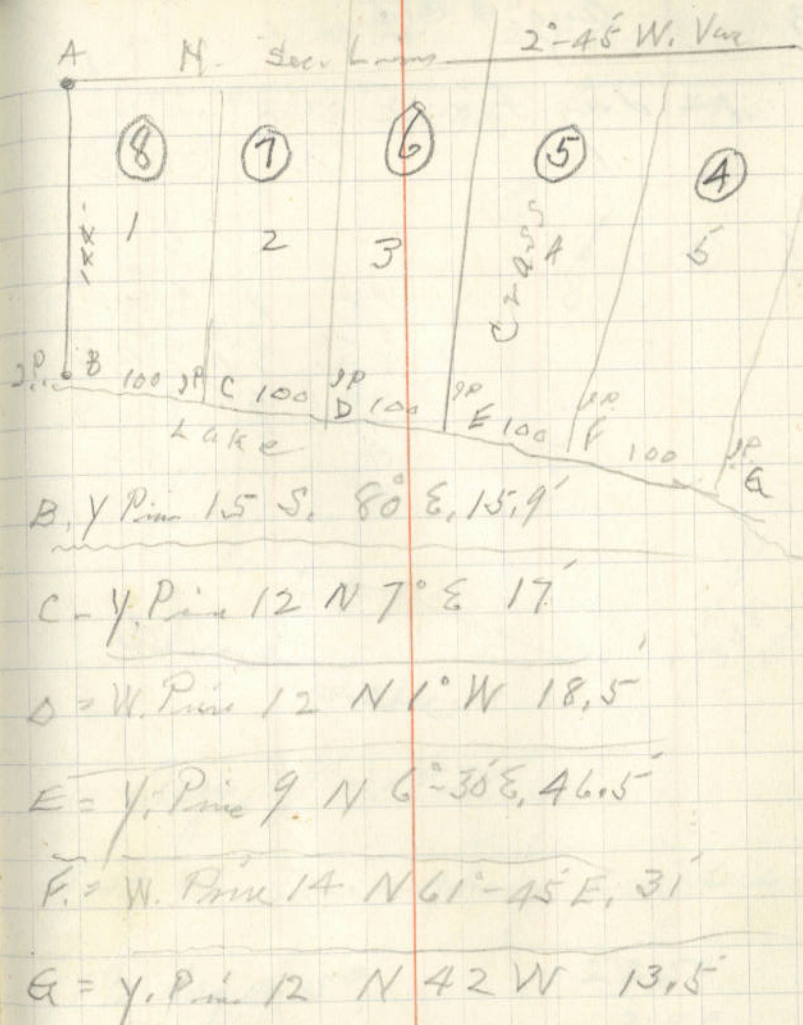 A N. Sec. Line 2°-45' W. Var
8 7 6 5 4
1 2 3 A 5
B 100 C 100 D 100 E 100 F 100 G
I.P. I.P. I.P. I.P. I.P. I.P.
Lake
B. Y Pine 15 S. 80° E, 15.9'
C - Y. Pine 12 N 7° E 17'
D = W. Pine 12 N 1° W 18.5'
E = Y. Pine 9 N 6°-30' E, 46.5'
F. = W. Pine 14 N 61°-45' E, 31'
G = Y. Pine 12 N 42 W - 13.5'